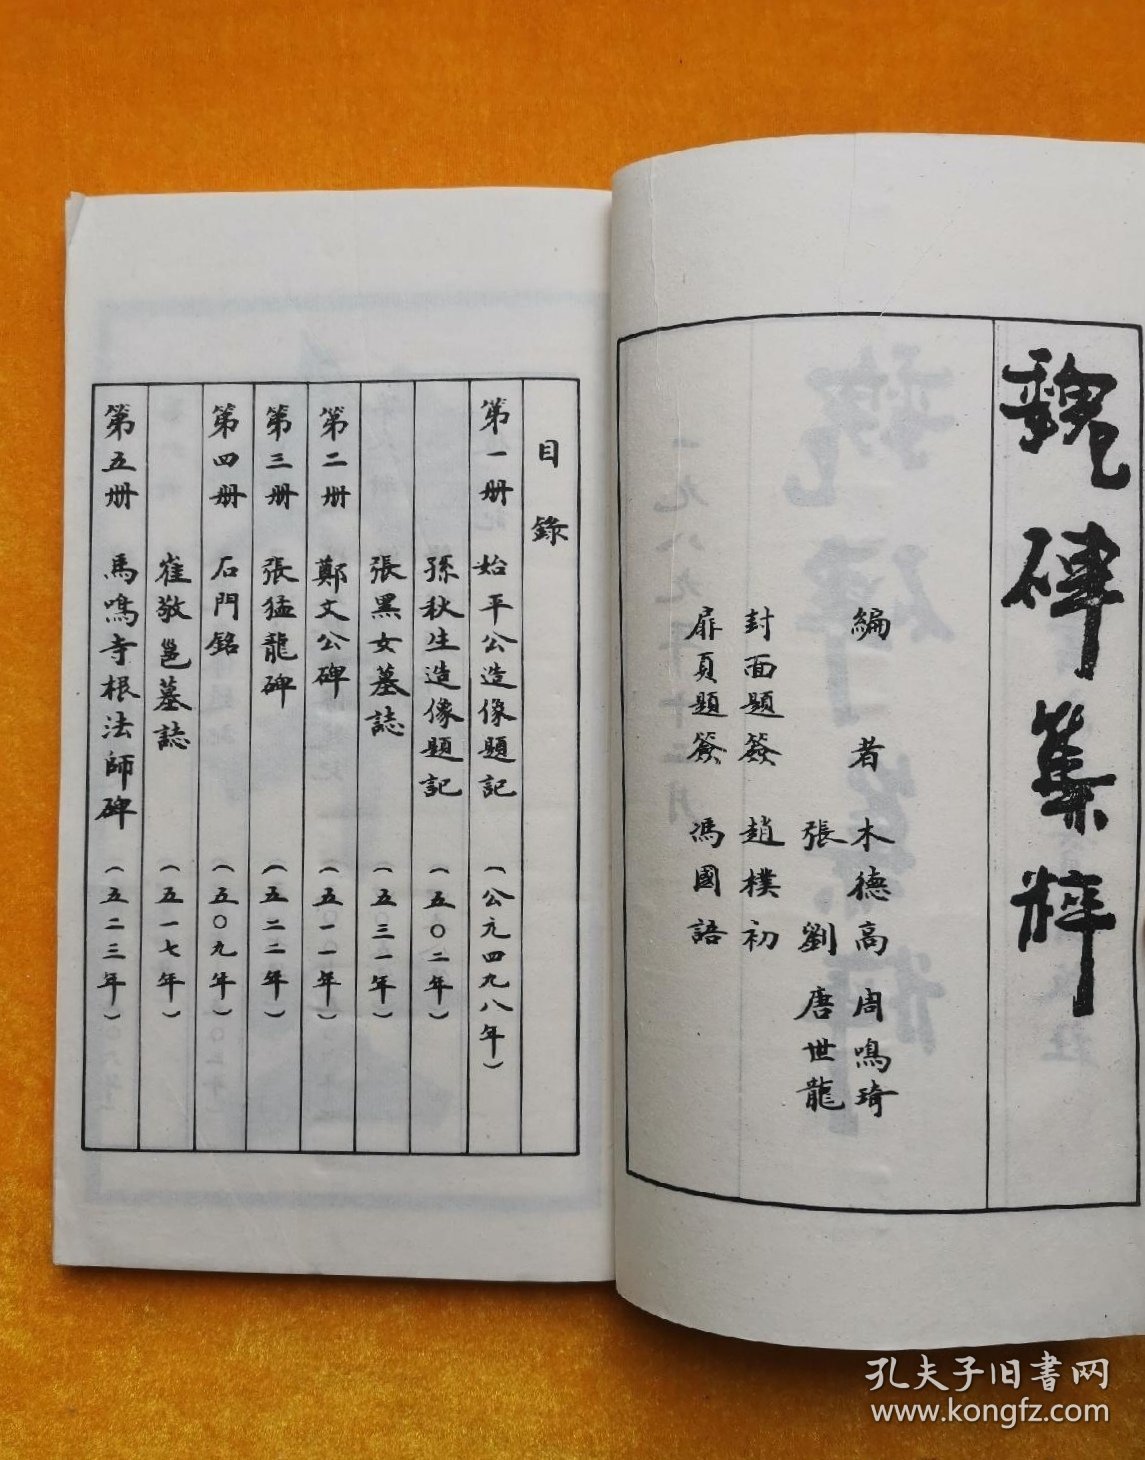 魏碑集粹
編者 木德高 周鳴琦
張劉 唐世龍
封面題簽 趙樸初
扉頁題簽 馮國語
目錄
第一册 始平公造像題記 (公元四九八年)
孫秋生造像題記 (五〇二年)
張黑女墓誌 (五三一年)
第二册 鄭文公碑 (五一一年)
第三册 張猛龍碑 (五二二年)
第四册 石門銘 (五〇九年)
崔敬邕墓誌 (五一七年)
第五册 馬鳴寺根法師碑 (五二三年)
孔夫子旧书网
www.kongfz.com